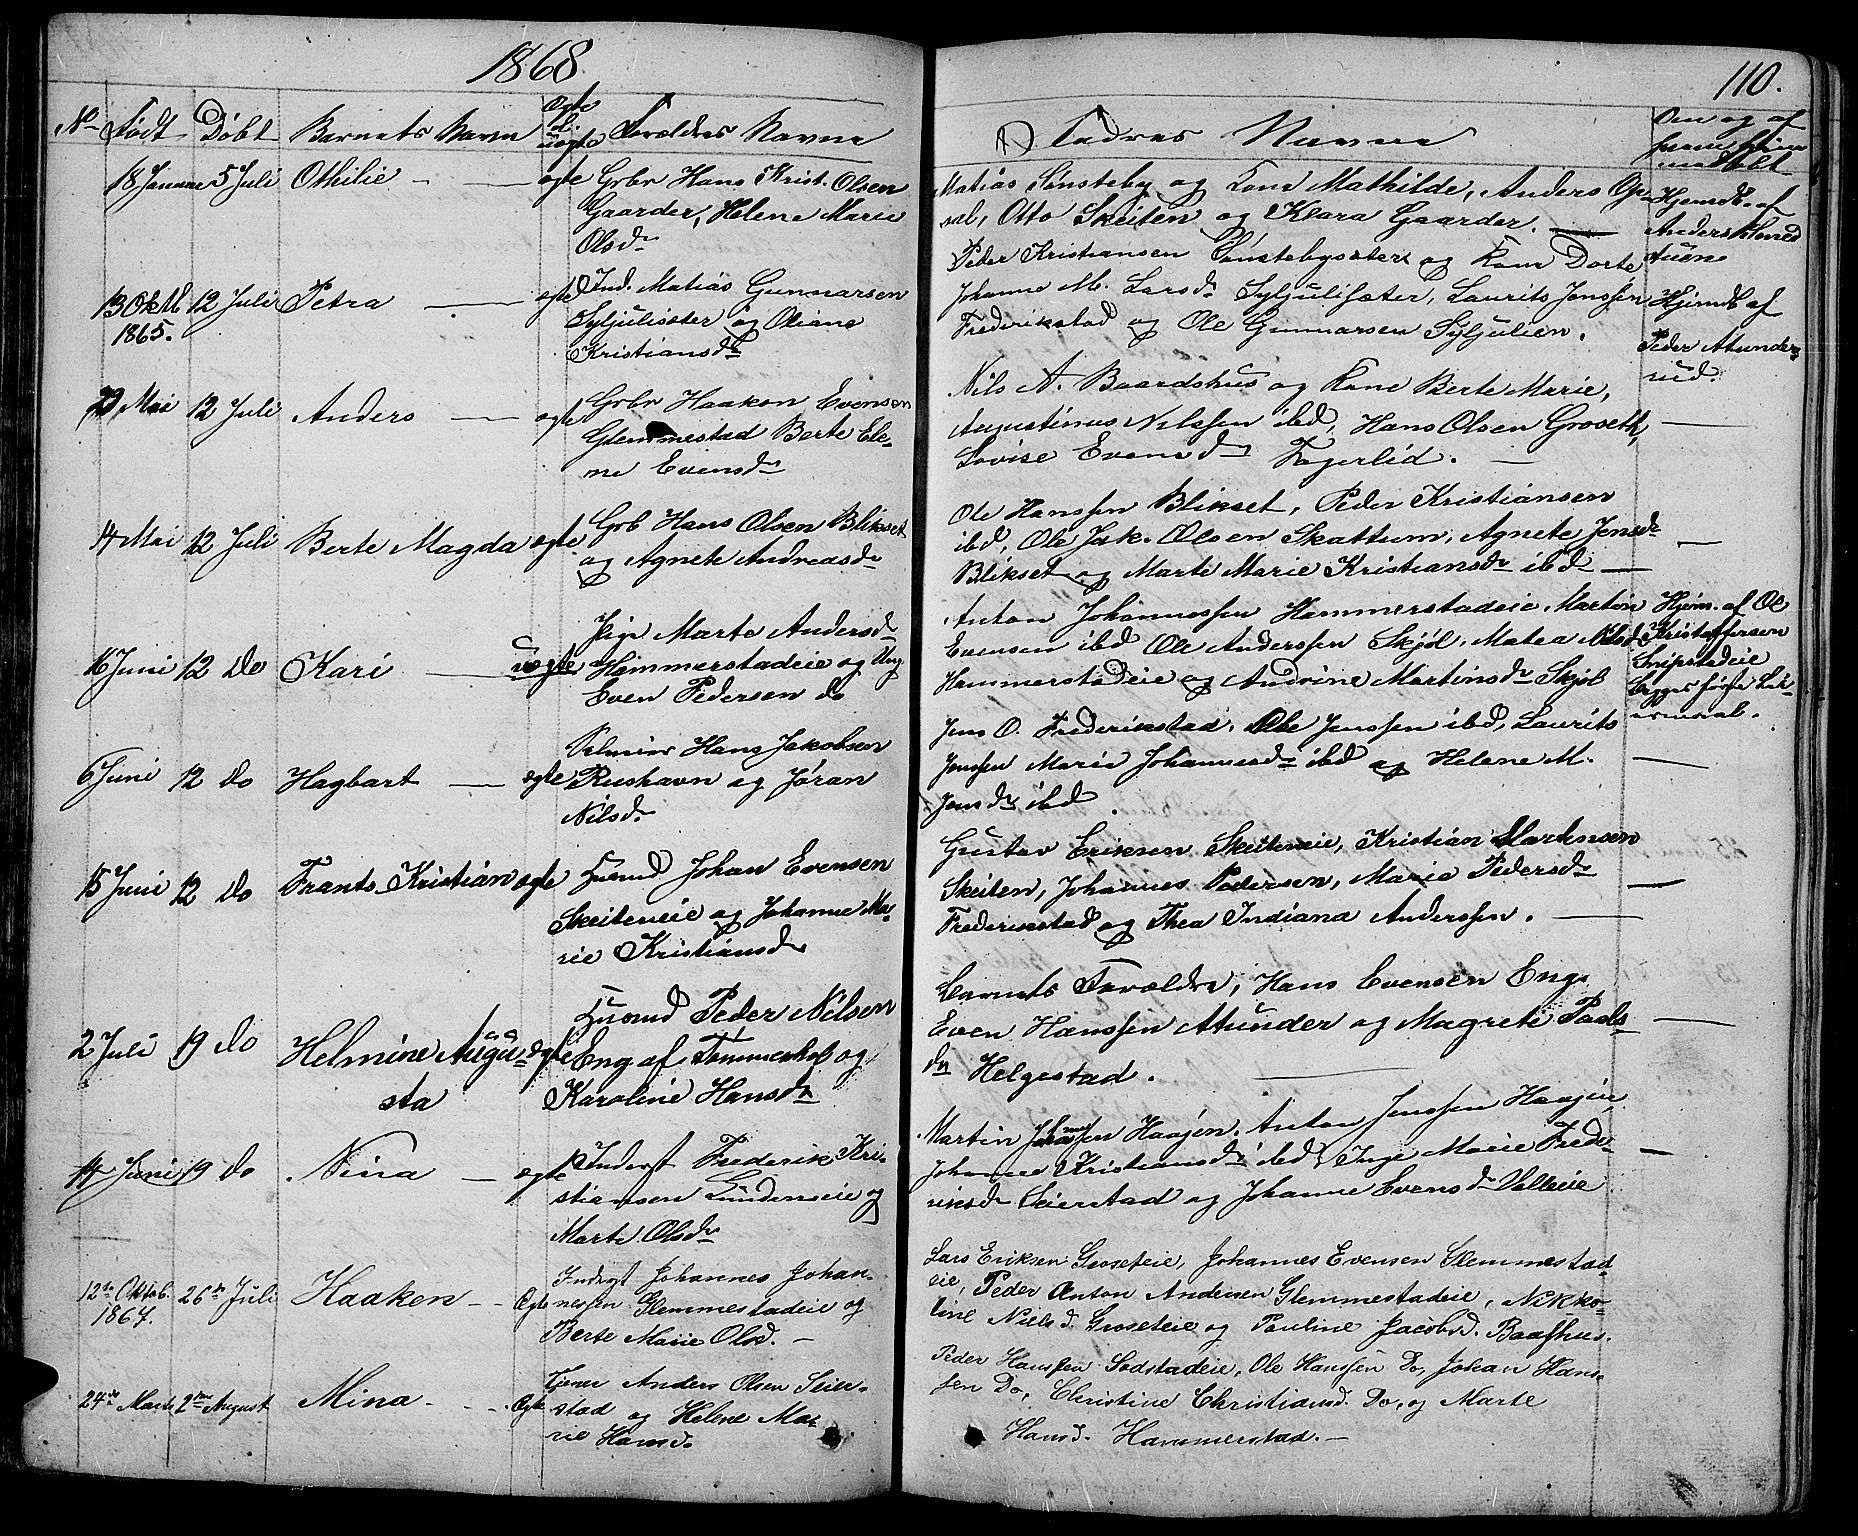 1868.
110.
No Født Døbt Barnets Navn Ægte el. uægte Forældres Navne
Fadres Navne
Om og af hvem hjemmedøbt
18 Januar 5 Juli Othilie ægte Grbr Hans Krist. Olsen
Gaarder, Helene Marie
Olsdr
Matias Sønsteby og Kone Mathilde, Anders Op-
sal, Otto Skeiten og Klara Gaarder.
Hjemdb. af
Anders
13 Oktb 1865. 12 Juli Petra ægte Ind. Matias Gunnarsen
Syljulisæter og Oliane
Kristiansdr
Peder Kristiansen Sønstebysæter og Kone Dorte
Johanne M. Larsdr Syljulisæter, Laurits Jenssen
Frederikstad og Ole Gunnarsen Syljulien.
Hjemdb af
Peder Atunde-
rud.
Mai 12 Juli Anders ægte Grbr Haakon Evensen
Glemmestad Berte Ele-
ne Evensdr
Nils A. Baardshus og Kone Berte Marie,
Augustinus Nilssen ibd, Hans Olsen Groseth,
Lovise Evensdr Fagerlid.
14 Mai 12 Juli Berte Magda ægte Grb Hans Olsen Blikset
og Agnete Andreasdr
Ole Hanssen Blikset, Peder Kristiansen
ibd, Ole Jak. Olsen Skattum, Agnete Jensdr
Blikset og Marte Marie Kristiansdr ibd
16 Juni 12 do Kari uægte Pige Marte Andersdr
Hammerstadeie og Ung
Even Pedersen do
Anton Johannessen Hammerstadeie, Martin
Evensen ibd Ole Anderssen Skjøl, Matea Nilsd.
Hammerstadeie og Andrine Martinsdr Skjøl
Hjem. af Ole
Kristoffersen
Snipstadeie
Begges første Lei-
ermaal.
6 Juni 12 do Hagbart ægte Selveier Hans Jakobsen
Rushavn og Jøran
Nilsdr
Jens O. Frederikstad, Ole Jenssen ibd, Laurits
Jenssen Marie Johannesdr ibd og Helene M.
Jensdr ibd
15 Juni 12 do Frants Kristian ægte Husmd Johan Evensen
Skeiteneie og Johanne Ma-
rie Kristiansdr
Gustav Eriksen Skeiteneie, Kristian Martinsen
Skeiten, Johannes Pedersen, Marie Pedersdr
Frederikstad og Thea Indiana Anderssen.
2 Juli 19 do Helmine Augu- ægte Husmd Peder Nilsen
sta Eng af Tømmerhol og
Karoline Hansdr
Barnets Forældre, Hans Evensen Eng
Even Hanssen Atunder og Magrete Pals-
dr Helgestad.
14 Juni 19 do Nina ægte Inderst Frederik Kri-
stiansen Lundeneie og
Marte Olsdr
Martin Johannessen Haajen, Anton Jenssen Haajen,
Johanne Kristiansdr ibd, Inge Marie Fred-
riksdr Seierstad og Johanne Evensdr Valleie
12te Oktob. 1867. 26de Juli Haaken Ægte Inderst Johannes Johan-
nessen Glemmestadeie og
Berte Marie Olsd.
Lars Eriksen Groseteie, Johannes Evensen Glemmestad-
eie, Peder Anton Andersen Glemmestadeie, Nikko-
line Nielsd. Groseteie og Pauline Jacobsd. Baashus.
24de Marts 2den August Mina Ægte Tjener Anders Olsen Seier-
stad og Helene Ma-
rie Hansd.
Peder Hanssen Sodstadeie, Ole Hanssen Do, Johan Hans-
sen Do, Christine Christiansd. Do, og Marte
Hansd. Hammerstad.